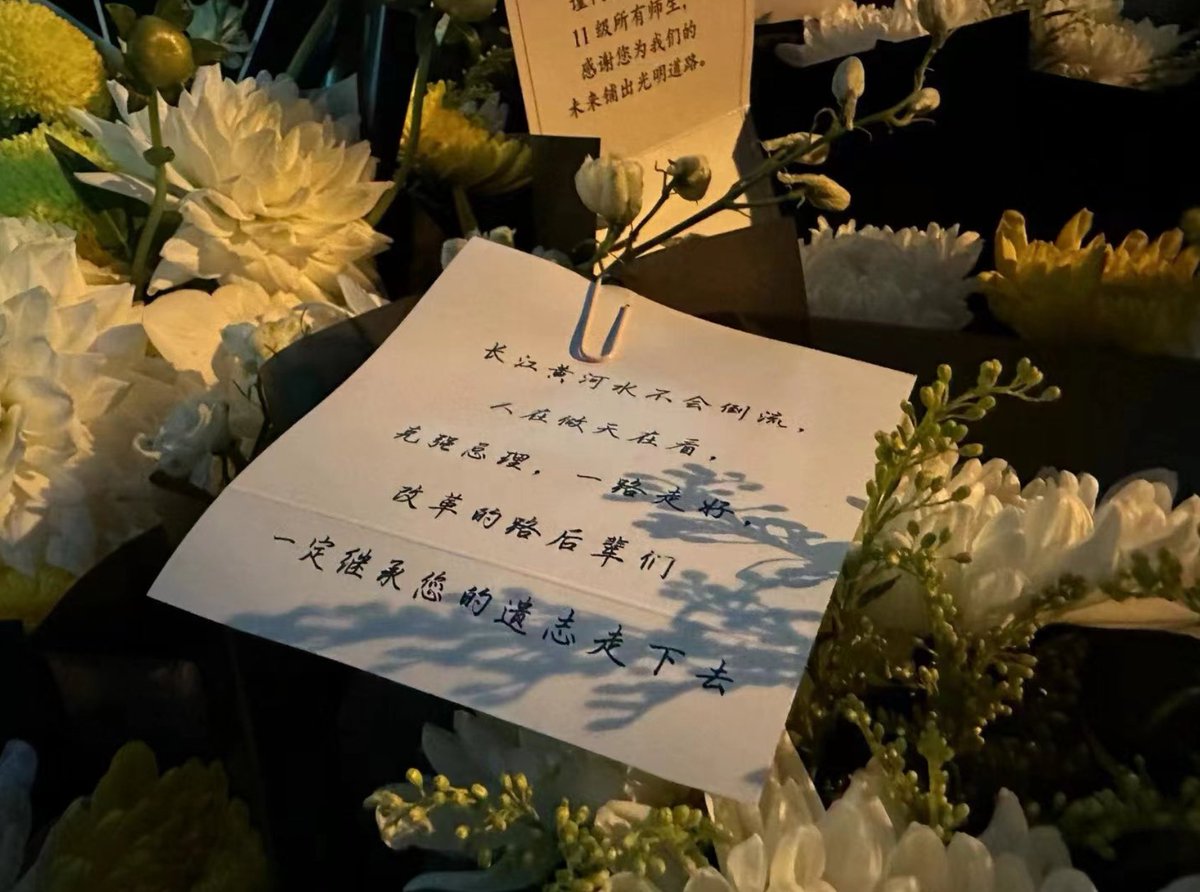 11 级所有师生，
感谢您为我们的
未来铺出光明道路。
长江黄河水不会倒流，
人在做天在看，
克强总理，一路走好，
改革的路后辈们
一定继承您的遗志走下去